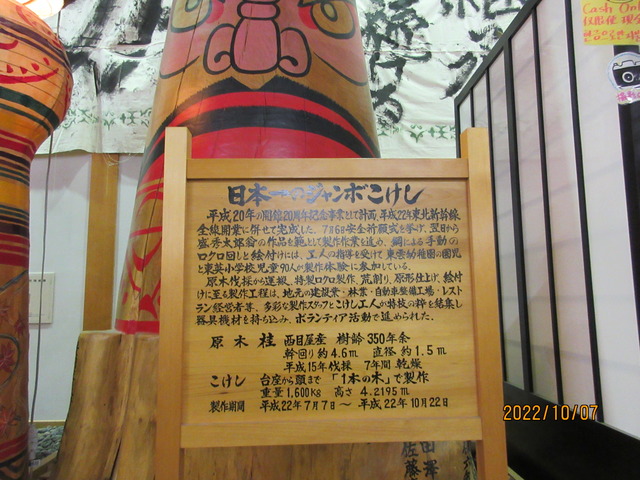 日本一のジャンボこけし
平成20年の開館20周年記念事業として計画、平成22年東北新幹線
全線開業に併せて完成した。7月6日安全祈願式を挙げ、翌日から
盛秀太郎翁の作品を範として製作作業を進め、綱による手動の
ロクロ回しと絵付けには、工人の指導を受けて東雲幼稚園の園児
と東英小学校児童90人が製作体験に参加している。
原木伐採から運搬、特製ロクロ製作、荒削り、原形仕上げ、絵付
けに至る製作工程は、地元の建設業・林業・自動車整備工場・レスト
ラン経営者等、多彩な製作スタッフとこけし工人が特技の粋を結集し
器具機材を持ち込み、ボランティア活動で進められた。
原木 桂 西目屋産 樹齢 350年余
幹回り約4.6m 直径 約1.5m
平成15年伐採 7年間 乾燥
こけし 台座から頭まで「1本の木」で製作
重量1,600Kg 高さ 4.2195m
製作期間 平成22年7月7日～平成22年10月22日
Cash On
田澤
佐藤
2022/10/07